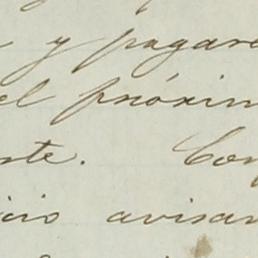 y pagare
el próxim
ste. Con
icio avisar